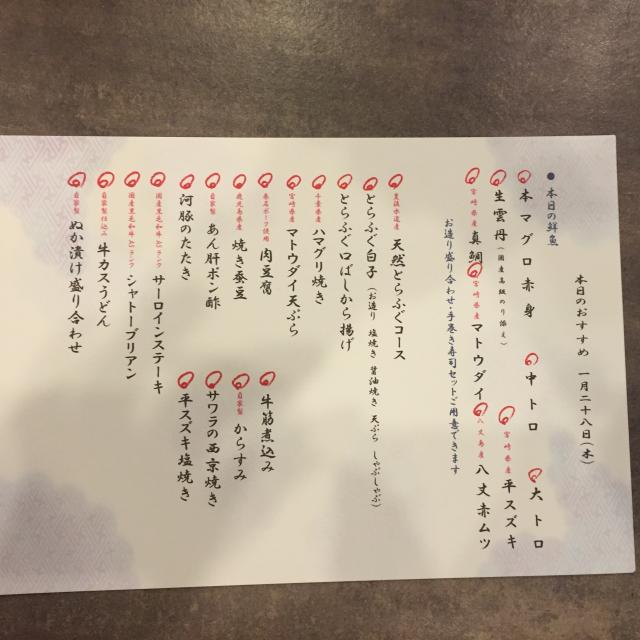 本日のおすすめ 一月二十八日(木)
● 本日の鮮魚
本マグロ赤身 中トロ 大トロ
生雲丹(国産高級のり添え) 宮崎県産 平スズキ
宮崎県産 真鯛 宮崎県産 マトウダイ 八丈島産 八丈赤ムツ
お造り盛り合わせ・手巻き寿司セットご用意できます
豊後水道産 天然とらふぐコース
とらふぐ白子(お造り 塩焼き 醤油焼き 天ぷら しゃぶしゃぶ)
とらふぐ口ばしから揚げ
千葉県産 ハマグリ焼き
宮崎県産 マトウダイ天ぷら
ポーク使用 肉豆腐 牛筋煮込み
鹿児島県産 焼き蚕豆 自家製 からすみ
自家製 あん肝ポン酢 サワラの西京焼き
河豚のたたき 平スズキ塩焼き
国産黒毛和牛A5ランク サーロインステーキ
国産黒毛和牛A5ランク シャトーブリアン
自家製仕込み 牛カスうどん
自家製 ぬか漬け盛り合わせ